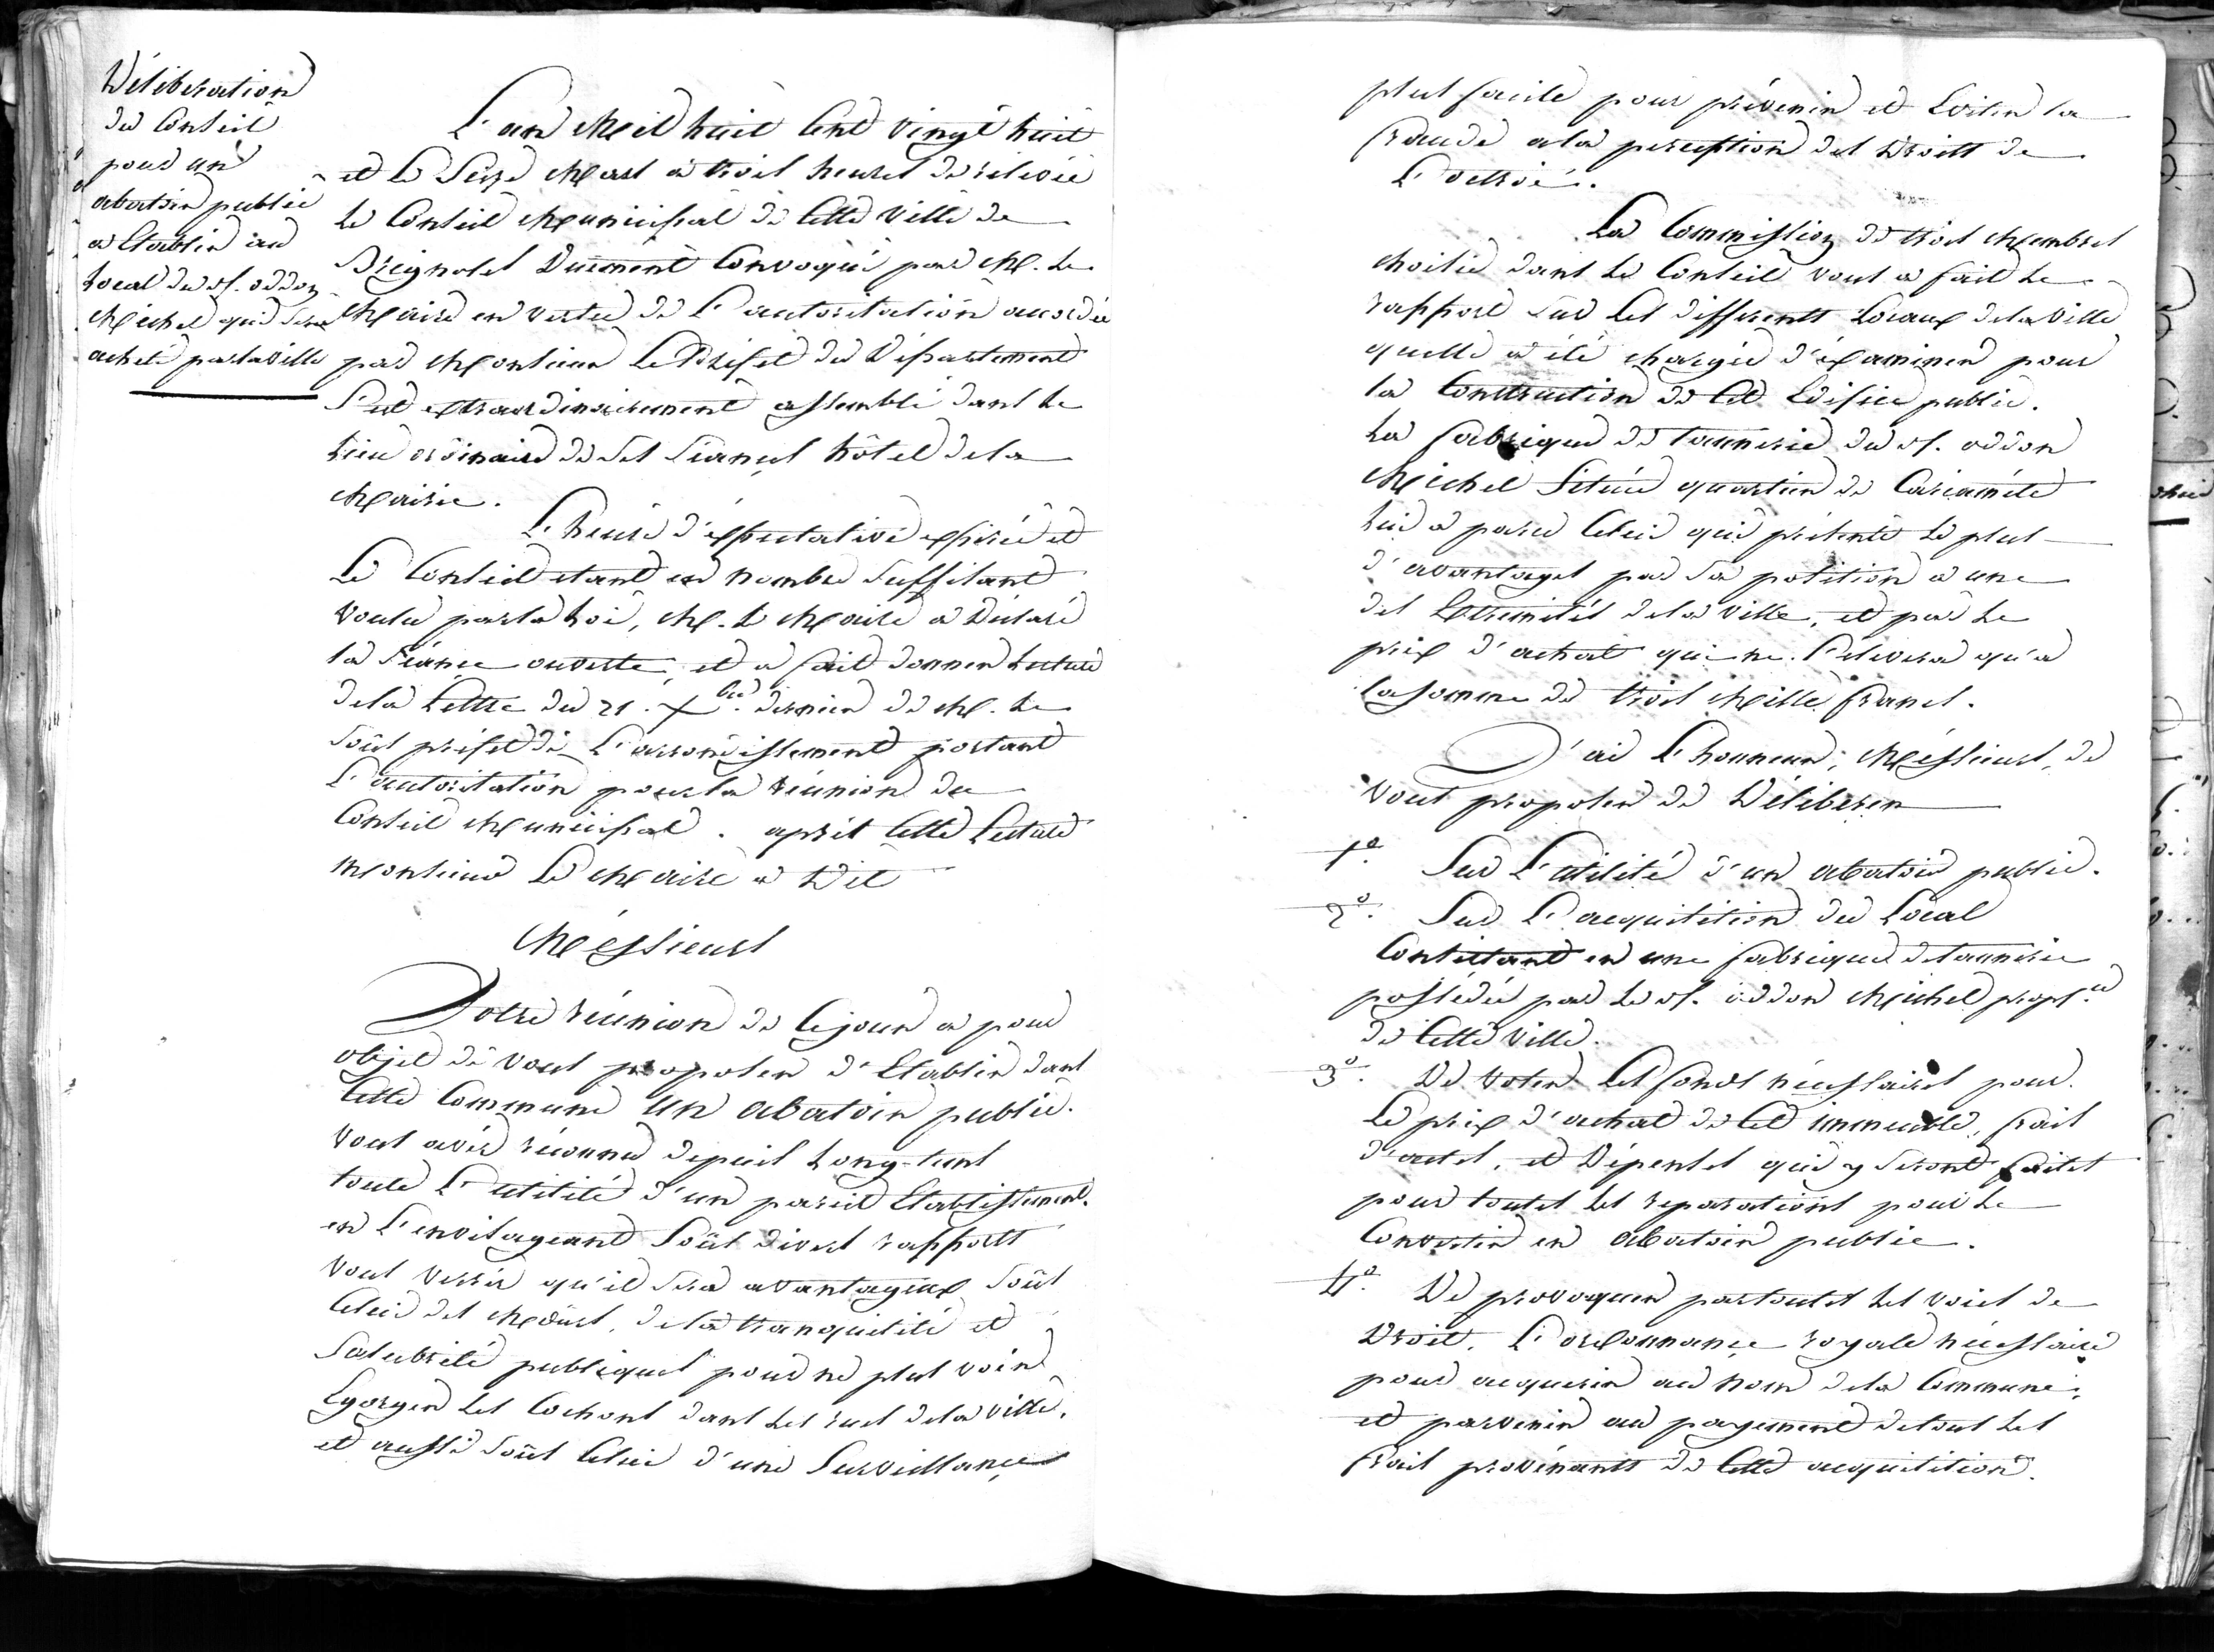 Déliberation
du Conseil
pour un
abatoir public
a Etablir au
Local du Sr. oddon
Michel qui sera
acheté par la ville
L'an Mil huit Cent vingt huit
et le seize Mars à trois heures de relevée
le Conseil Municipal de Cette Ville de
Brignoles Duëment Convoqué par M. le
Maire en vertu de L'autorisation accordée
par Monsieur Le Préfet du Département
S'est extraordinairement assemblé dans le
Lieu ordinaire de ses séances hôtel de la
Mairie.
L'heure d'éxpectative expirée et
Le Conseil etant en nombre suffisant
voulu par la Loi, M. le Maire a Déclaré
la séance ouverte, et a fait donner Lecture
de la Lettre du 21. Xbre. dernier de M. le
soûs préfet de L'arrondissement portant
L'autorisation pour la réunion du
Conseil Municipal. après Cette Lecture
Monsieur Le Maire a Dit
Méssieurs
Votre réunion de Ce jour a pour
objet de vous proposer d'Etablir dans
Cette Commune un abatoir public.
vous avés réconnu depuis Long-tems
toute L'utilité d'un pareil Etablissement.
en L'envisageant soûs divers rapports
vous verrés qu'il sera avantageux soûs
Celui des Moeurs, de la tranquilité et
salubrité publiques pour ne plus voir
Egorger Les Cochons dans Les rues de la ville,
et aussi soûs Celui d'une Surveillance
plus facile pour prévenir et Eviter la
fraude a la perception des Droits de
L'octroi.
La Commission de trois Membres
choisie dans le Conseil vous a fait le
rapport sur Les differents Locaux de la Ville
quelle a été chargée d'éxaminer pour
la Construction de Cet Edifice public.
La fabrique de tannerie du Sr. oddon
Michel située quartier de Cariamète
Lui a paru Celui qui présente le plus
d'avantages par sa position a une
des Extremités de la Ville, et par le
prix d'achat qui ne S'elevera qu'a
la somme de trois Mille francs.
J'ai L'honneur, Méssieurs, de
vous proposer de Déliberer
1o. Sur L'utilité d'un abatoir public.
2o. Sur L'acquisition du Local
Consistant en une fabrique de tannerie
possédée par le Sr. oddon Michel propre.
de Cette Ville.
3o. De voter Les fonds nécessaires pour
Le prix d'achat de Cet immeuble, frais
d'actes, et Dépenses qui y seront faites
pour toutes les reparations pour le
Convertir en abatoir public.
4o. De provoquer par toutes les voies de
Droit, L'ordonnance royale nécessaire
pour acquerir au nom de la Commune,
et parvenir au payement de tous les
frais provénants de Cette acquisition.